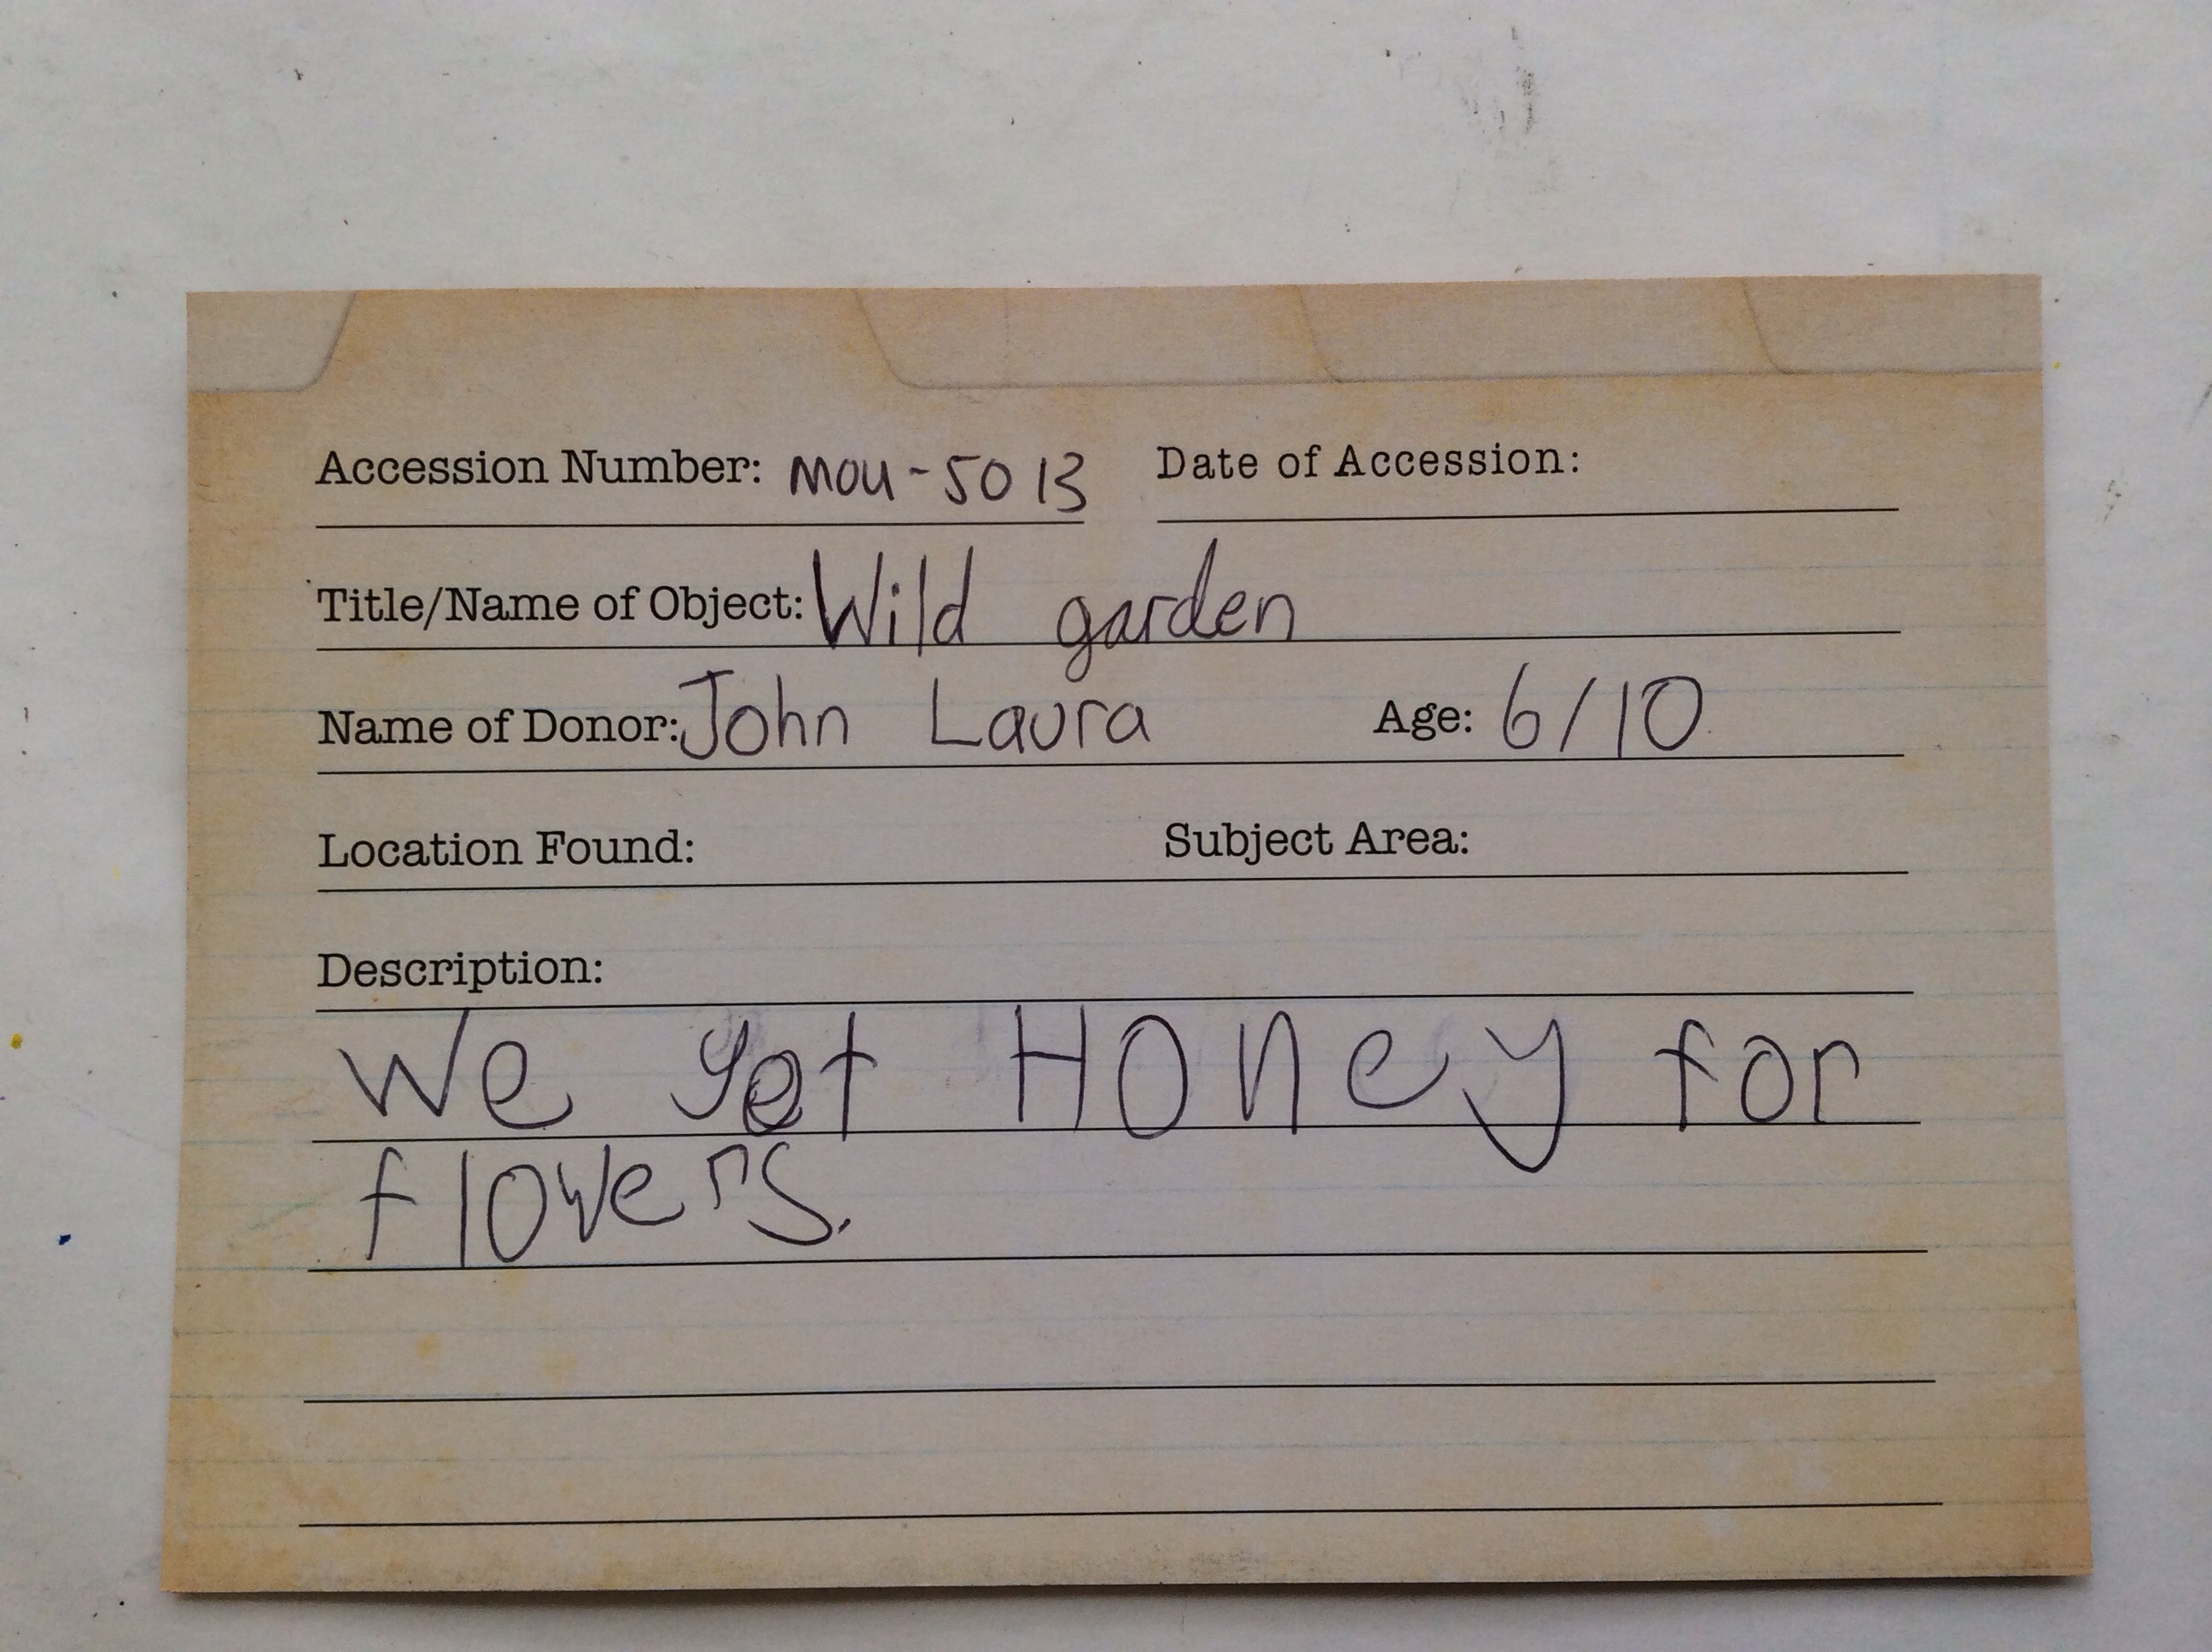 Accession Number: MOU-5013 Date of Accession:
Title/Name of Object: Wild garden
Name of Donor: John Laura Age: 6/10
Location Found: Subject Area:
Description:
We get HOney for
flowers.